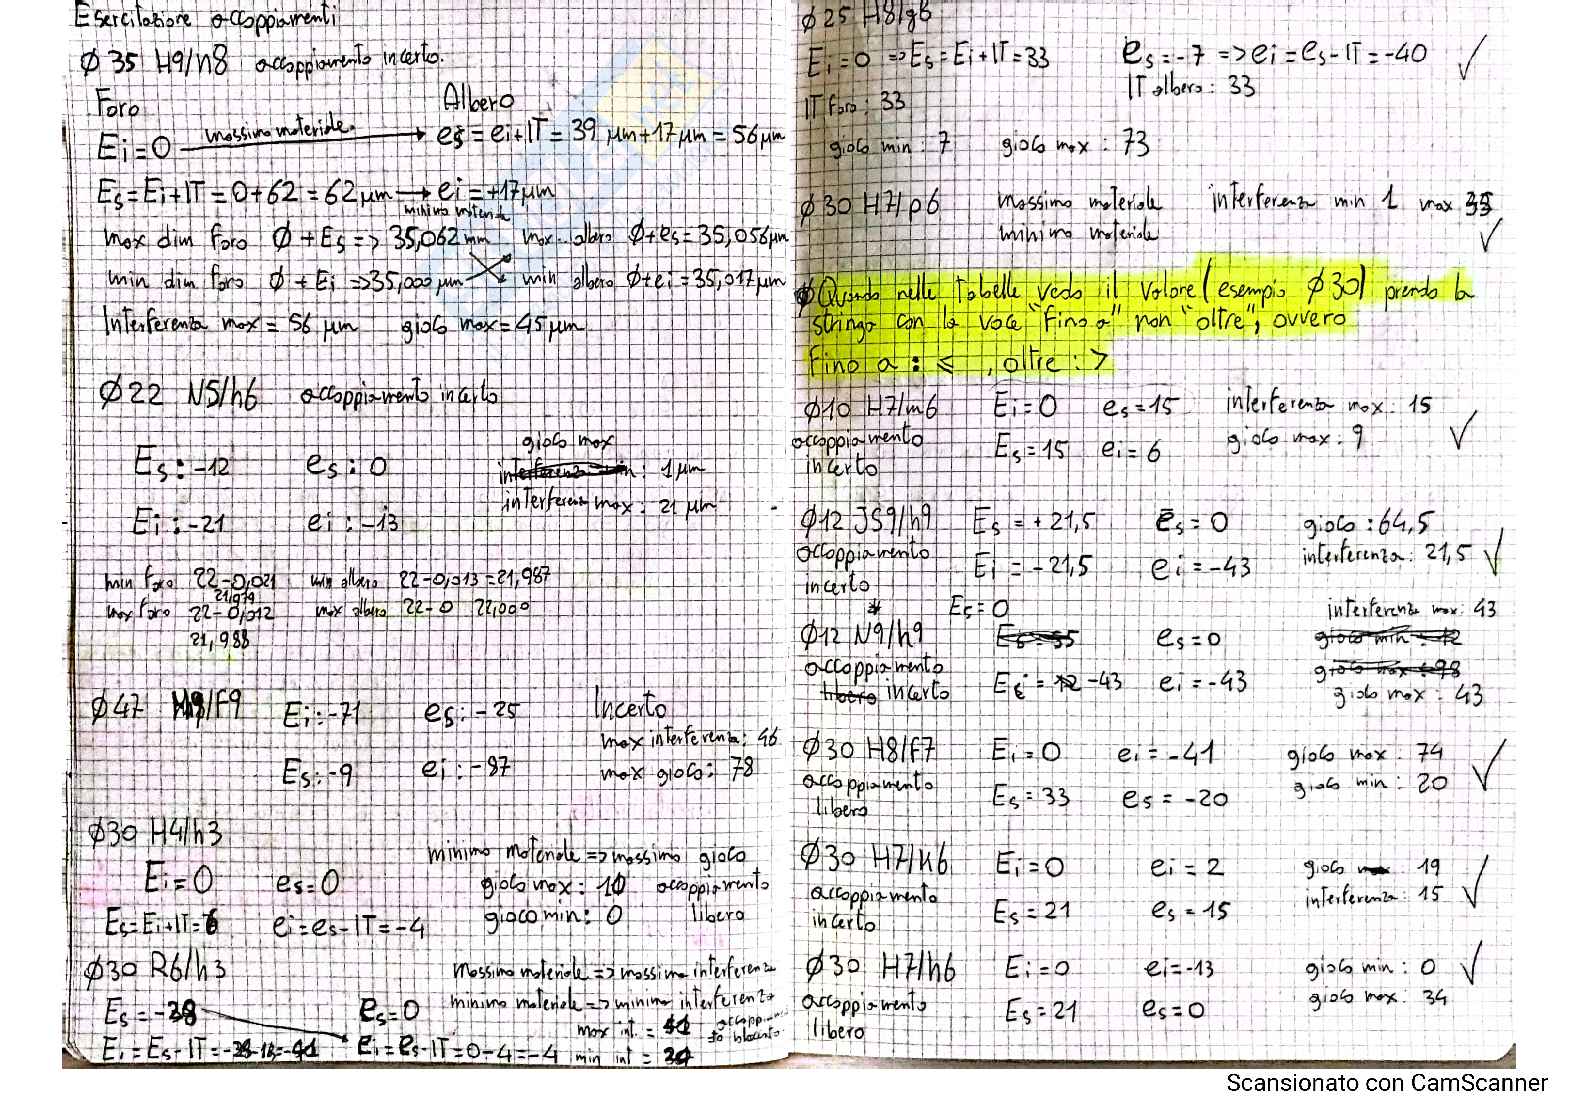 Esercitazione accoppiamenti
Ø 35 H9/n8 accoppiamento incerto.
Foro Albero
Ei=0 massimo materiale es=ei+IT = 39 µm+17µm = 56µm
Es=Ei+IT=0+62=62µm minimo materiale ei=+17µm
max dim foro Ø+Es=>35,062mm max albero Ø+es=35,056µm
min dim foro Ø+Ei=>35,000µm min albero Ø+ei=35,017µm
Interferenza max = 56 µm gioco max=45µm
Ø22 N5/h6 accoppiamento incerto
gioco max : 1µm
Es:-12 es:0
interferenza max: 21 µm
Ei:-21 ei:-13
min foro 22-0,021 min albero 22-0,013=21,987
21,979
max foro 22-0,012 max albero 22-0 22,000
21,988
Ø47 /F9 Ei:-71 es:-25 Incerto
max interferenza: 46
Es:-9 ei:-87 max gioco: 78
Ø30 H4/h3
minimo materiale => massimo gioco
Ei=0 es=0 gioco max: 10 accoppiamento
Es=Ei+IT=6 ei=es-IT=-4 gioco min: 0 libero
Ø30 R6/h3 massimo materiale => massima interferenza
minimo materiale => minima interferenza
Es=- es=0
max int. =
Ei=Es-IT= ei=es-IT=0-4=-4 min int =
Ø25 H8/g8
Ei=0 =>Es=Ei+IT=33 es=-7 =>ei=es-IT=-40 ✓
IT foro: 33 IT albero: 33
gioco min: 7 gioco max: 73
Ø30 H7/p6 massimo materiale interferenza min 1 max 35
minimo materiale ✓
Quando nelle tabelle vedo il valore (esempio Ø30) prendo la
stringa con la voce "fino a" non "oltre", ovvero
fino a : ⩽ , oltre : >
Ø10 H7/m6 Ei=0 es=15 interferenza max: 15
accoppiamento Es=15 ei=6 gioco max: 9 ✓
incerto
Ø12 JS9/h9 Es=+21,5 es=0 gioco: 64,5
accoppiamento Ei=-21,5 ei=-43 interferenza: 21,5 ✓
incerto
* Es=0 interferenza max: 43
Ø12 N9/h9 es=0
accoppiamento Ei=-43 ei=-43
incerto gioco max: 43
Ø30 H8/f7 Ei=0 ei=-41 gioco max: 74
accoppiamento Es=33 es=-20 gioco min: 20 ✓
libero
Ø30 H7/k6 Ei=0 ei=2 gioco 19
accoppiamento Es=21 es=15 interferenza: 15 ✓
incerto
Ø30 H7/h6 Ei=0 ei=-13 gioco min: 0 ✓
accoppiamento Es=21 es=0 gioco max: 34
libero
Scansionato con CamScanner